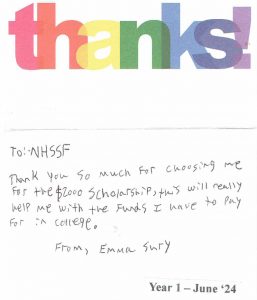 thanks!
To: NHSSF
Thank you so much for choosing me
for the $2000 scholarship, this will really
help me with the funds I have to pay
for in college.
From, Emma Sury
Year 1 – June ‘24